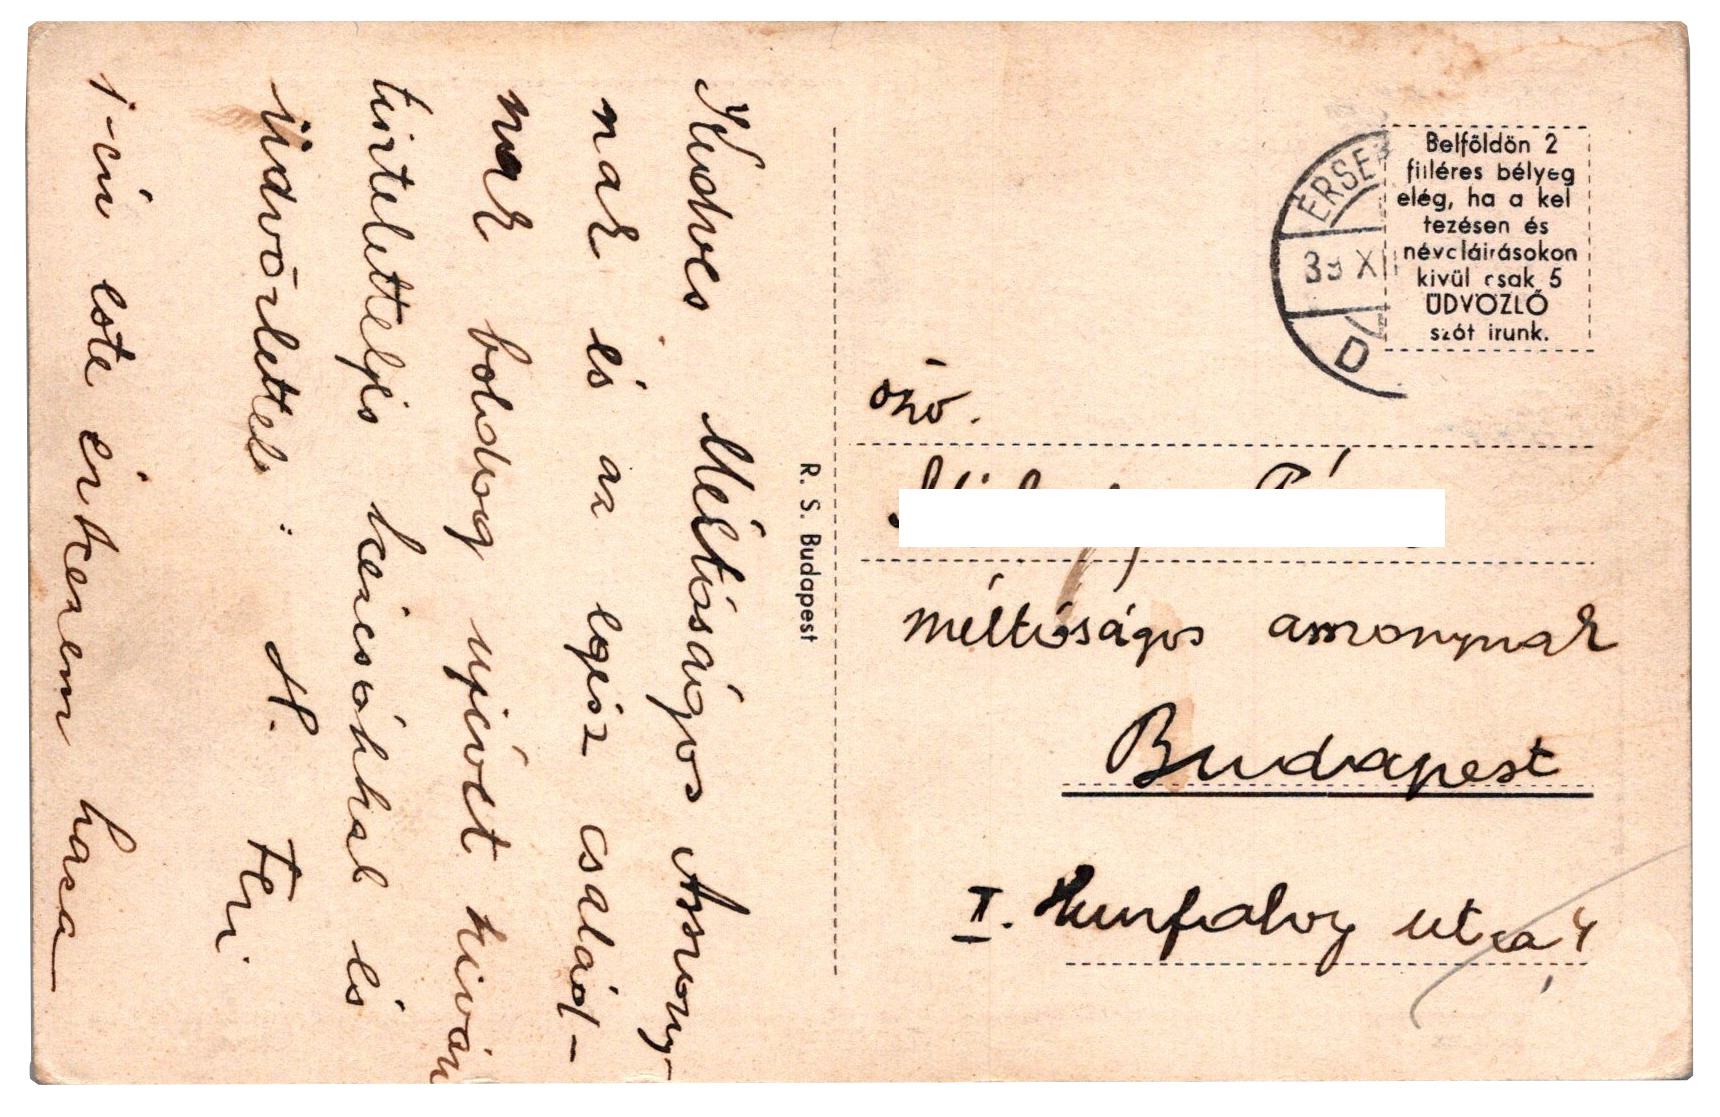 Kedves Méltóságos Asszony-
nak és az egész család-
nak boldog ujévet kiván
tiszteletteljes kézcsókkal és
üdvözlettel: H. Feri
1-én este érkezem haza
R. S. Budapest
ÉRSE
39 XII
D
Belföldön 2
filléres bélyeg
elég, ha a kel
tezésen és
névaláirásokon
kivül csak 5
ÜDVÖZLŐ
szót irunk.
özv.
méltóságos asszonynak
Budapest
I. Hunfalvy utca 4